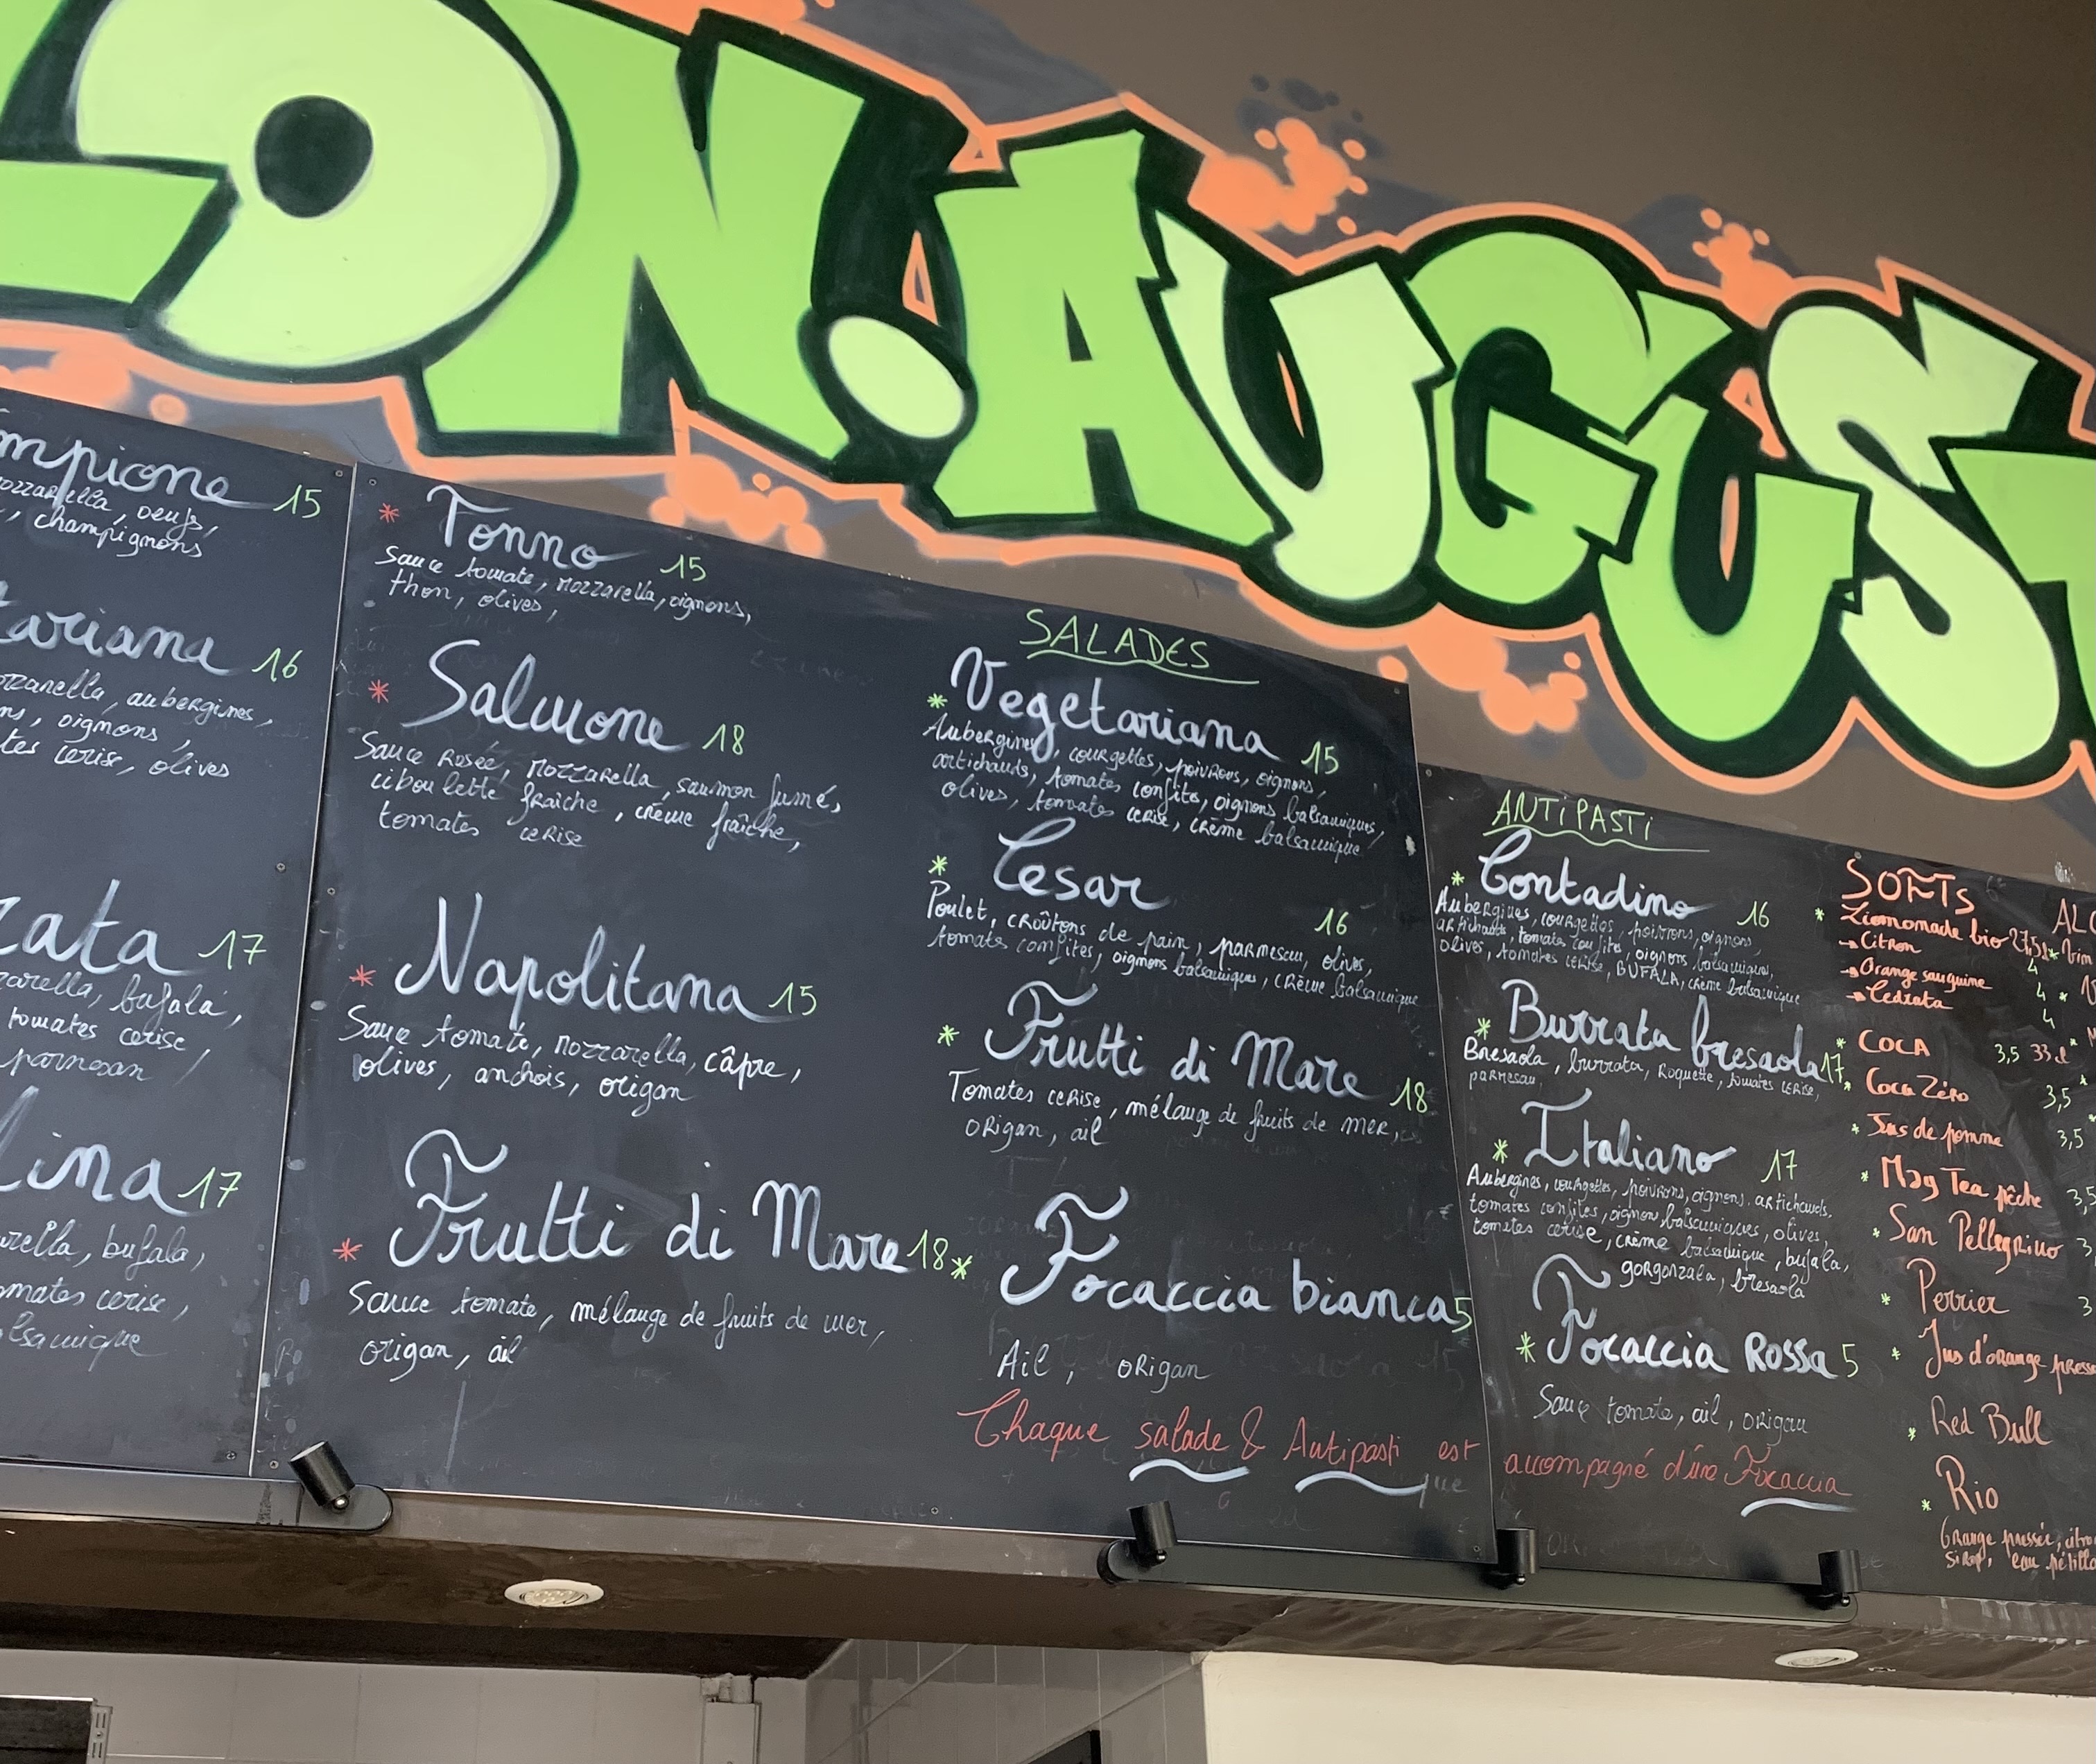 ON.AUGUS
mpione 15
ozzarella, oeufs,
, champignons
tariana 16
ozzarella, aubergines,
ns, oignons,
tes cerise, olives
zata 17
zarella, bufala,
tomates cerise,
parmesan /
lina 17
arella, bufala,
omates cerise,
lsamique
* Tonno 15
Sauce tomate, mozzarella, oignons,
thon, olives,
* Salmone 18
Sauce Rosée, mozzarella, saumon fumé,
ciboulette fraîche, crème fraîche,
tomates cerise
* Napolitana 15
Sauce tomate, mozzarella, câpre,
olives, anchois, origan
* Frutti di Mare 18
Sauce tomate, mélange de fruits de mer,
origan, ail
SALADES
* Vegetariana 15
Aubergines, courgettes, poivrons, oignons,
artichauts, tomates confites, oignons balsamiques,
olives, tomates cerise, crème balsamique
* Cesar 16
Poulet, croûtons de pain, parmesan, olives,
tomates confites, oignons balsamiques, crème balsamique
* Frutti di Mare 18
Tomates cerise, mélange de fruits de mer,
origan, ail
* Focaccia bianca 5
Ail, origan
Chaque salade & Antipasti est accompagné d'une Focaccia
ANTIPASTI
* Contadino 16
Aubergines, courgettes, poivrons, oignons,
artichauts, tomates confites, oignons balsamiques,
olives, tomates cerise, BUFALA, crème balsamique
* Burrata bresaola 17
Bresaola, burrata, Roquette, tomates cerise,
parmesan
* Italiano 17
Aubergines, courgettes, poivrons, oignons, artichauts,
tomates confites, oignons balsamiques, olives,
tomates cerise, crème balsamique, bufala,
gorgonzola, bresaola
* Focaccia Rossa 5
Sauce tomate, ail, origan
SOFTS
* Liomonade bio
→ Citron 4
→ Orange sanguine 4
→ Cedrata 4
* COCA 3,5 33cl
* Coca Zéro 3,5
* Jus de pomme 3,5
* May Tea pêche 3,5
* San Pellegrino 3,
* Perrier 3
* Jus d'orange presse
* Red Bull
* Rio
Orange pressée, citro
sirop, eau pétilla
ALC